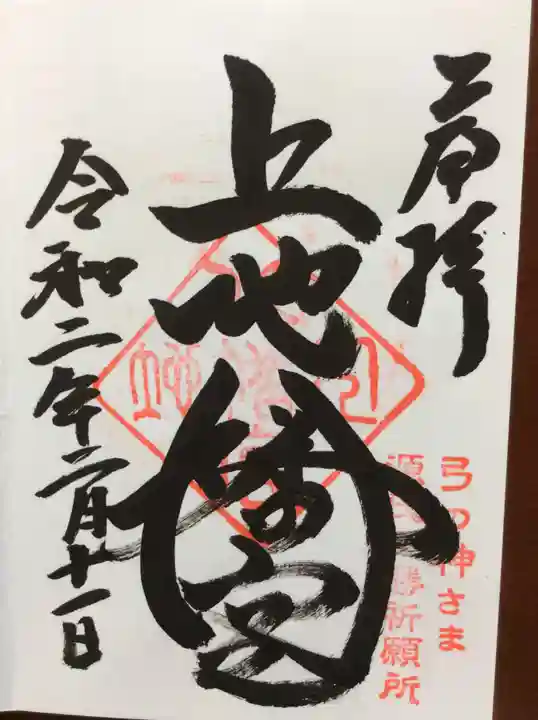 奉拝
弓の神さま
源氏必勝祈願所
上地八幡宮
令和二年二月十一日